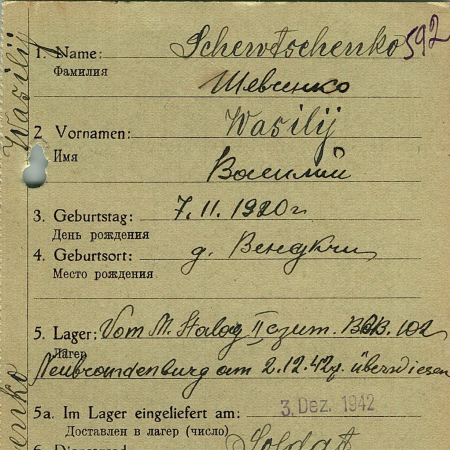 592
1. Name: Schewtschenko
Фамилия
Шевченко
2 Vornamen: Wasilij
Имя
Василий
3. Geburtstag: 7.11.1920г
День рождения
4. Geburtsort: д.
Место рождения
5. Lager: Vom M. Stalag II zum. 102
Лагер
Neubrandenburg am 2.12.42г. überwiesen
5a. Im Lager eingeliefert am: 3. Dez. 1942
Доставлен в лагер (число)
Soldat
Wasilij
enko